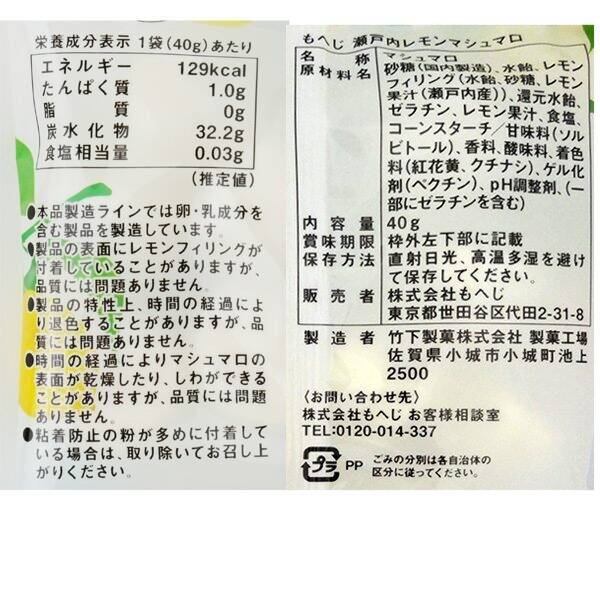 栄養成分表示 1袋(40g)あたり
エネルギー 129kcal
たんぱく質 1.0g
脂質 0g
炭水化物 32.2g
食塩相当量 0.03g
(推定値)
●本品製造ラインでは卵・乳成分を
含む製品を製造しています。
●製品の表面にレモンフィリングが
付着していることがありますが、
品質には問題ありません。
●製品の特性上、時間の経過によ
り退色することがありますが、品
質には問題ありません。
●時間の経過によりマシュマロの
表面が乾燥したり、しわができる
ことがありますが、品質には問題
ありません。
●粘着防止の粉が多めに付着して
いる場合は、取り除いてお召し上
がりください。
もへじ 瀬戸内レモンマシュマロ
名称 マシュマロ
原材料名 砂糖(国内製造)、水飴、レモン
フィリング(水飴、砂糖、レモン
果汁(瀬戸内産))、還元水飴、
ゼラチン、レモン果汁、食塩、
コーンスターチ/甘味料(ソル
ビトール)、香料、酸味料、着色
料(紅花黄、クチナシ)、ゲル化
剤(ペクチン)、pH調整剤、(一
部にゼラチンを含む)
内容量 40g
賞味期限 枠外左下部に記載
保存方法 直射日光、高温多湿を避け
て保存してください。
販売者 株式会社もへじ
東京都世田谷区代田2-31-8
製造者 竹下製菓株式会社 製菓工場
佐賀県小城市小城町池上
2500
〈お問い合わせ先〉
株式会社もへじ お客様相談室
TEL:0120-014-337
プラ PP ごみの分別は各自治体の
区分に従ってください。